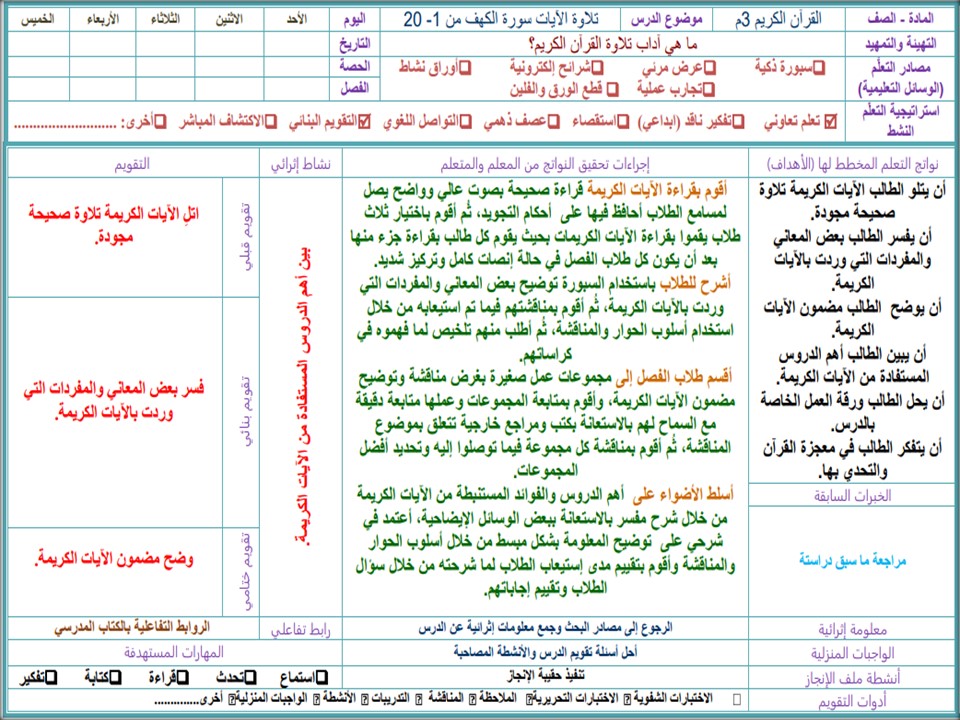 المادة - الصف القرآن الكريم 3م موضوع الدرس تلاوة الآيات سورة الكهف من 1- 20 اليوم الأحد الاثنين الثلاثاء الأربعاء الخميس
التهيئة والتمهيد ما هي آداب تلاوة القرآن الكريم؟ التاريخ
مصادر التعلّم (الوسائل التعليمية)
❑سبورة ذكية ❑عرض مرئي ❑شرائح إلكترونية ❑أوراق نشاط
❑تجارب عملية ❑ قطع الورق والفلين
الحصة
الفصل
استراتيجية التعلّم النشط
☑ تعلم تعاوني ❑تفكير ناقد (ابداعي) ❑استقصاء ❑عصف ذهمي ❑التواصل اللغوي ☑التقويم البنائي ❑الاكتشاف المباشر ❑أخرى: ..........................
نواتج التعلم المخطط لها (الأهداف) إجراءات تحقيق النواتج من المعلم والمتعلم نشاط إثرائي التقويم
أن يتلو الطالب الآيات الكريمة تلاوة
صحيحة مجودة.
أن يفسر الطالب بعض المعاني
والمفردات التي وردت بالآيات
الكريمة.
أن يوضح الطالب مضمون الآيات
الكريمة.
أن يبين الطالب أهم الدروس
المستفادة من الآيات الكريمة.
أن يحل الطالب ورقة العمل الخاصة
بالدرس.
أن يتفكر الطالب في معجزة القرآن
والتحدي بها.
الخبرات السابقة
مراجعة ما سبق دراستة
أقوم بقراءة الآيات الكريمة قراءة صحيحة بصوت عالي وواضح يصل
لمسامع الطلاب أحافظ فيها على أحكام التجويد، ثُم أقوم باختيار ثلاث
طلاب يقموا بقراءة الآيات الكريمات بحيث يقوم كل طالب بقراءة جزء منها
بعد أن يكون كل طلاب الفصل في حالة إنصات كامل وتركيز شديد.
أشرح للطلاب باستخدام السبورة توضيح بعض المعاني والمفردات التي
وردت بالآيات الكريمة، ثُم أقوم بمناقشتهم فيما تم استيعابه من خلال
استخدام أسلوب الحوار والمناقشة، ثُم أطلب منهم تلخيص لما فهموه في
كراساتهم.
أقسم طلاب الفصل إلى مجموعات عمل صغيرة بغرض مناقشة وتوضيح
مضمون الآيات الكريمة، وأقوم بمتابعة المجموعات وعملها متابعة دقيقة
مع السماح لهم بالاستعانة بكتب ومراجع خارجية تتعلق بموضوع
المناقشة، ثُم أقوم بمناقشة كل مجموعة فيما توصلوا إليه وتحديد أفضل
المجموعات.
أسلط الأضواء على أهم الدروس والفوائد المستنبطة من الآيات الكريمة
من خلال شرح مفسر بالاستعانة ببعض الوسائل الإيضاحية، أعتمد في
شرحي على توضيح المعلومة بشكل مبسط من خلال أسلوب الحوار
والمناقشة وأقوم بتقييم مدى إستيعاب الطلاب لما شرحته من خلال سؤال
الطلاب وتقييم إجاباتهم.
بين أهم الدروس المستفادة من الآيات الكريمة.
تقويم قبلي
اتلِ الآيات الكريمة تلاوة صحيحة
مجودة.
تقويم بنائي
فسر بعض المعاني والمفردات التي
وردت بالآيات الكريمة.
تقويم ختامي
وضح مضمون الآيات الكريمة.
معلومة إثرائية الرجوع إلى مصادر البحث وجمع معلومات إثرائية عن الدرس رابط تفاعلي الروابط التفاعلية بالكتاب المدرسي
الواجبات المنزلية أحل أسئلة تقويم الدرس والأنشطة المصاحبة المهارات المستهدفة
أنشطة ملف الإنجاز تنفيذ حقيبة الإنجاز ❑استماع ❑تحدث ❑قراءة ❑كتابة ❑تفكير
أدوات التقويم الاختبارات الشفوية الاختبارات التحريرية الملاحظة المناقشة التدريبات الأنشطة الواجبات المنزلية أخرى..............